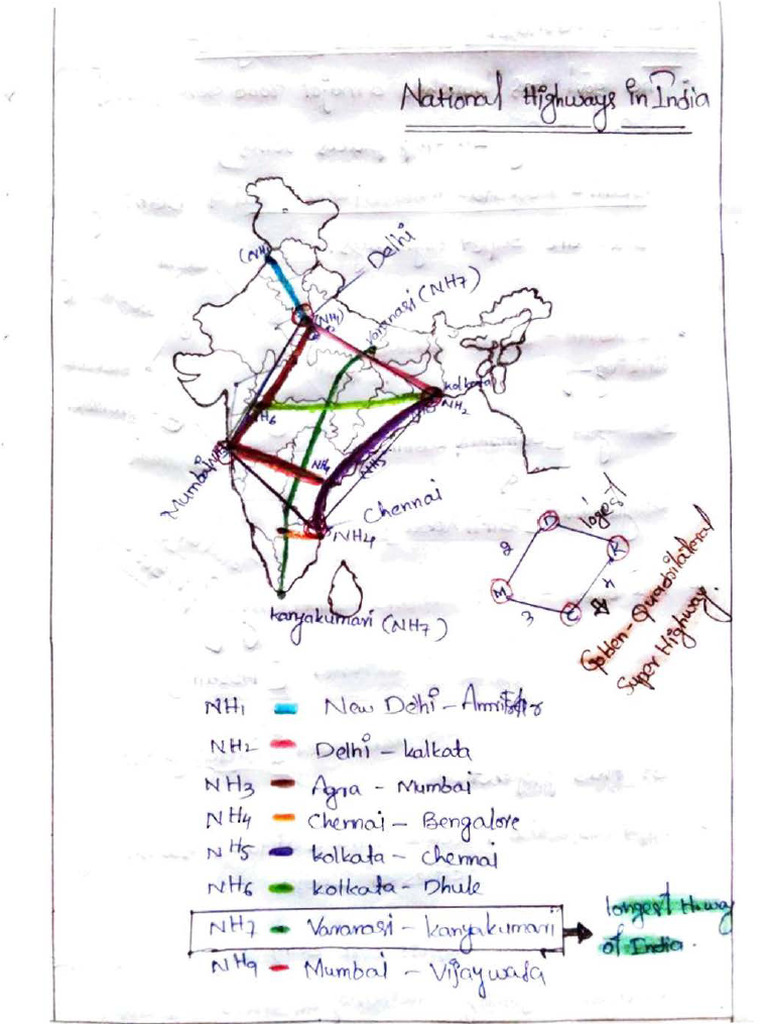 National Highways in India
(NH1
Delhi
(NH1)
Varanasi (NH7)
kolkata
NH2
H6
Mumbai
NH4
NH5
Chennai
NH4
kanyakumari (NH7)
D
logest
K
2
M
3
C
Golden-Quadrilateral
Super Highway.
NH1 New Delhi - Amritsar
NH2 Delhi - kalkata
NH3 Agra - Mumbai
NH4 Chennai - Bengalore
NH5 kolkata - Chennai
NH6 kolkata - Dhule
NH7 Varanasi - kanyakumari
longest Hiway
of India.
NH9 Mumbai - Vijaywada